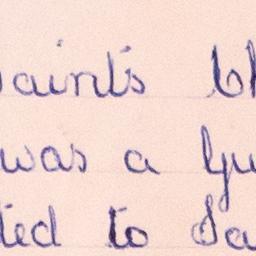 aint's Ch
was a Gu
ted to Sa